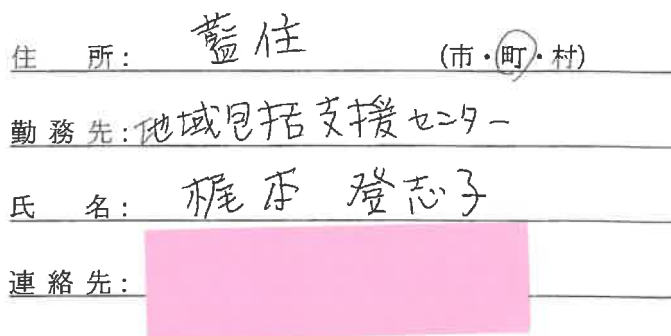 住 所: 藍住 (市・町・村)
勤務先: 地域包括支援センター
氏 名: 梶本 登志子
連絡先: